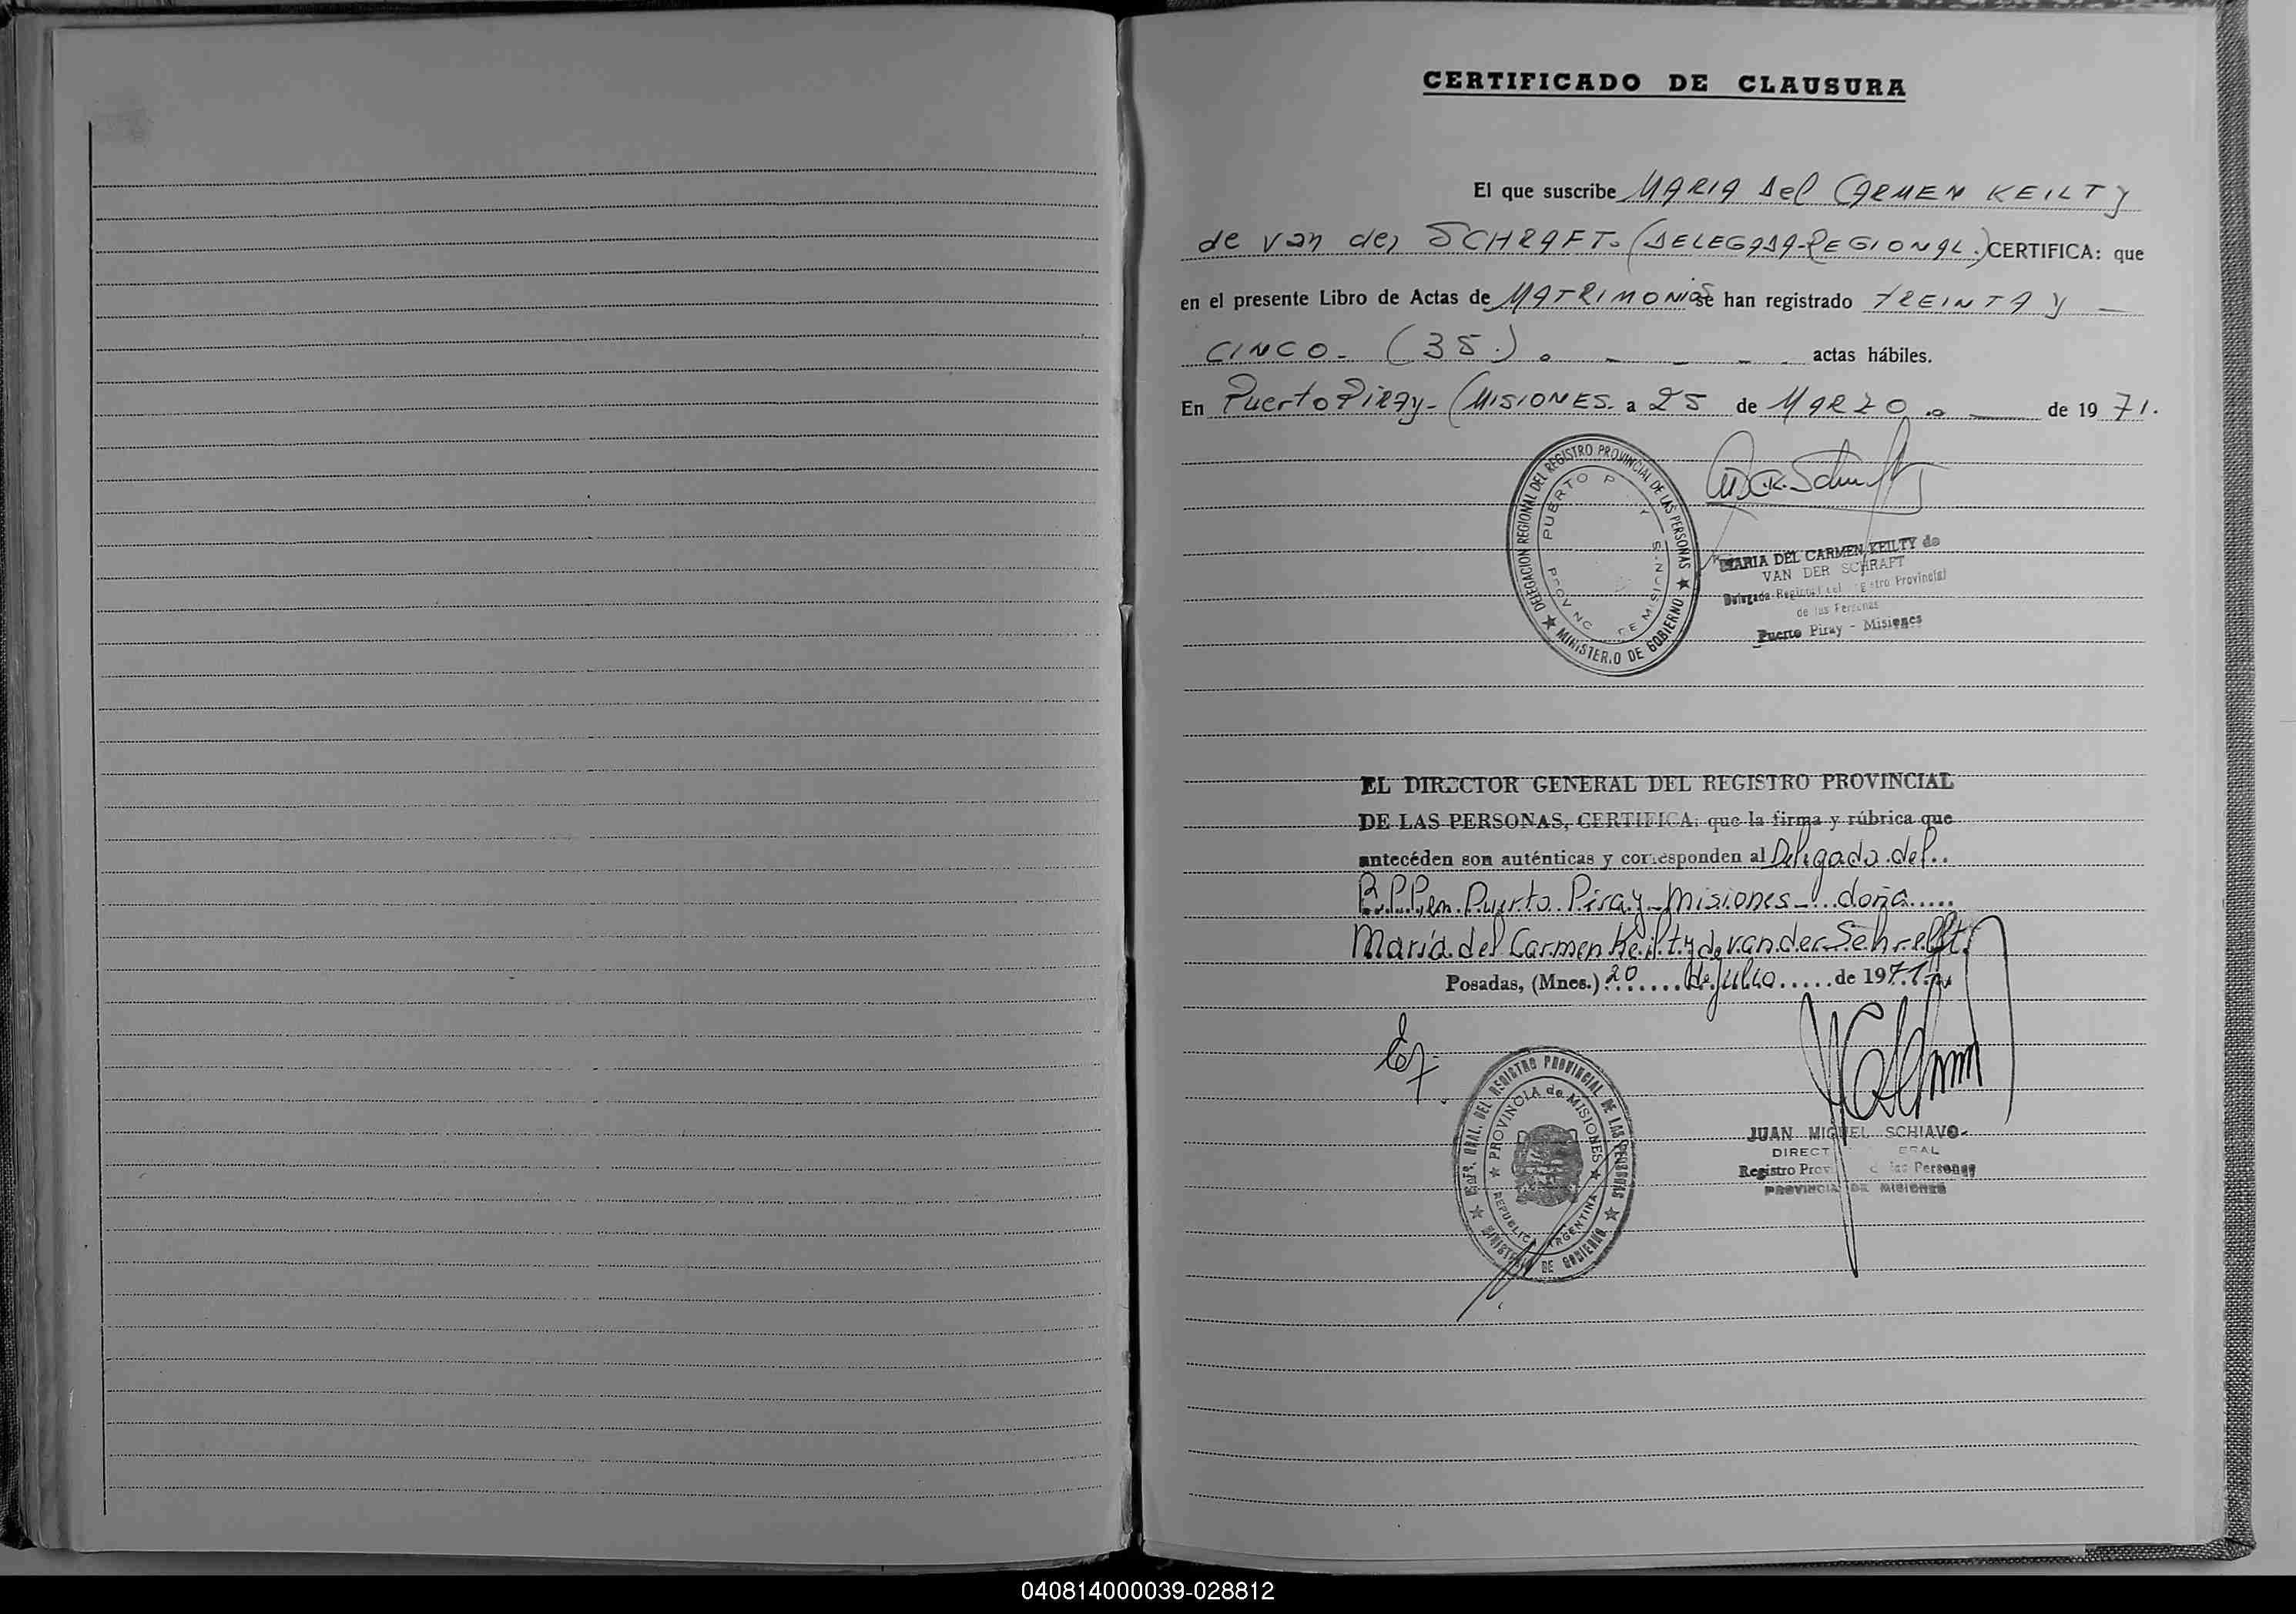 CERTIFICADO DE CLAUSURA
El que suscribe MARIA del CARMEN KEILTY
de van der SCHRAFT. (DELEGADA-REGIONAL.) CERTIFICA: que
en el presente Libro de Actas de MATRIMONIOS se han registrado TREINTA Y —
CINCO. (35.) . — — — actas hábiles.
En Puerto Piray - (MISIONES. a 25 de MARZO . — de 19 71.
DELEGACION REGIONAL DEL REGISTRO PROVINCIAL DE LAS PERSONAS ★ MINISTERIO DE GOBIERNO ★
PUERTO P Y
MARIA DEL CARMEN KEILTY de
VAN DER SCHRAFT
Delegada Regional del Provincial
de las Personas
Puerto Piray - Misiones
EL DIRECTOR GENERAL DEL REGISTRO PROVINCIAL
DE LAS PERSONAS, CERTIFICA: que la firma y rúbrica que
antecéden son auténticas y corresponden al Delegado del..
R.P.P. en Puerto Piray - Misiones - doña.....
María del Carmen Keilty de van der Schrafft.
Posadas, (Mnes.) 20 de Julio ..... de 1971.
REGISTRO PROVINCIAL DE LAS PERSONAS ★ MINISTERIO DE GOBIERNO ★
★ PROVINCIA de MISIONES ★ REPUBLICA ARGENTINA
JUAN MIGUEL SCHIAVO
Registro de las Personas
PROVINCIA DE MISIONES
040814000039-028812